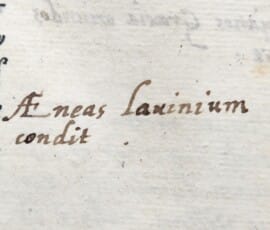 Æneas lauinium
condit .